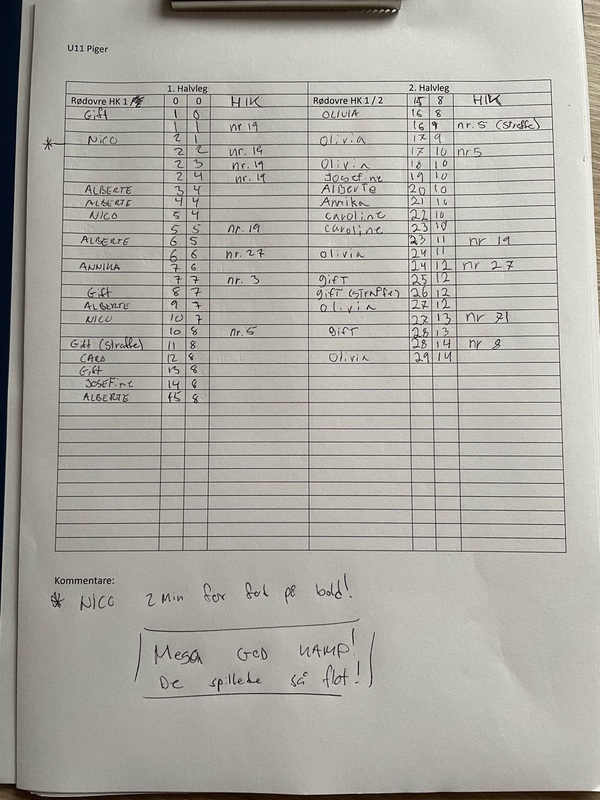 U11 Piger
1. Halvleg 2. Halvleg
Rødovre HK 1 0 0 HIK Rødovre HK 1 / 2 15 8 HIK
Gift 1 0 OLIVIA 16 8
1 1 nr 19 16 9 nr. 5 (straffe)
* NICO 2 1 Olivia 17 9
2 2 nr. 19 17 10 nr 5
2 3 nr. 19 Olivia 18 10
2 4 nr. 19 Josefine 19 10
ALBERTE 3 4 Alberte 20 10
ALBERTE 4 4 Annika 21 10
NICO 5 4 caroline 22 10
5 5 nr. 19 caroline 23 10
ALBERTE 6 5 23 11 nr 19
6 6 nr. 27 olivia 24 11
ANNIKA 7 6 24 12 nr 27
7 7 nr. 3 gift 25 12
Gift 8 7 gift (straffe) 26 12
ALBERTE 9 7 olivia 27 12
NICO 10 7 27 13 nr 71
10 8 nr. 5 gift 28 13
Gift (straffe) 11 8 28 14 nr 8
CARO 12 8 Olivia 29 14
Gift 13 8
JOSEFine 14 8
ALBERTE 15 8
Kommentare:
* NICO 2 Min for fod på bold!
Mega GOD KAMP!
De spillede så flot!